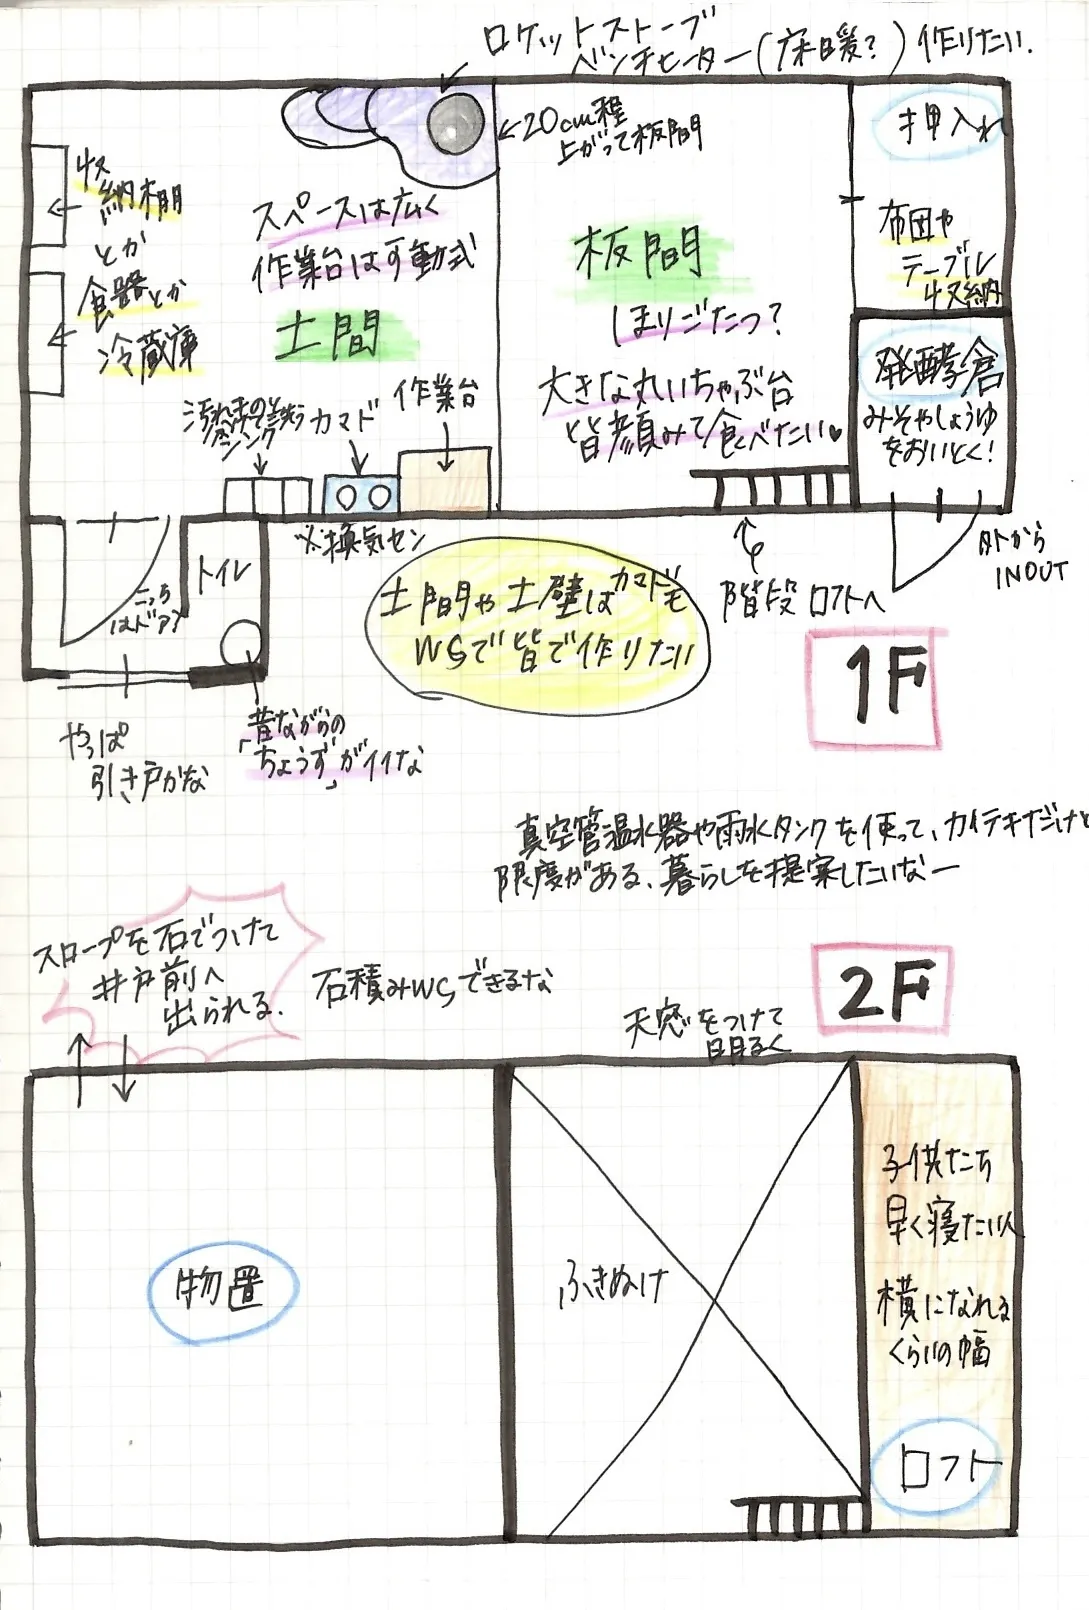 ロケットストーブ
ベンチヒーター(床暖?)作りたい.
20cm程
上がって板間
押入れ
収
納棚
とか
食器とか
冷蔵庫
スペースは広く
作業台は可動式
土間
板間
ほりごたつ?
大きな丸いちゃぶ台
皆顔みて食べたい♥
布団や
テーブル
収納
発酵倉
みそやしょうゆ
をおいとく!
汚れもの洗う
シンク
カマド
作業台
※換気セン
トイレ
こっち
はドア
土間や土壁はカマドも
WSで皆で作りたい
階段ロフトへ
外から
INOUT
1F
やっぱ
引き戸かな
昔ながらの
「ちょうず」がイイな
真空管温水器や雨水タンクを使って、カイテキだけど
限度がある、暮らしを提案したいなー
スロープを石でつけて
井戸前へ
出られる.
石積みWSできるな
2F
天窓をつけて
明るく
物置
ふきぬけ
子供たち
早く寝たい人
横になれる
くらいの幅
ロフト